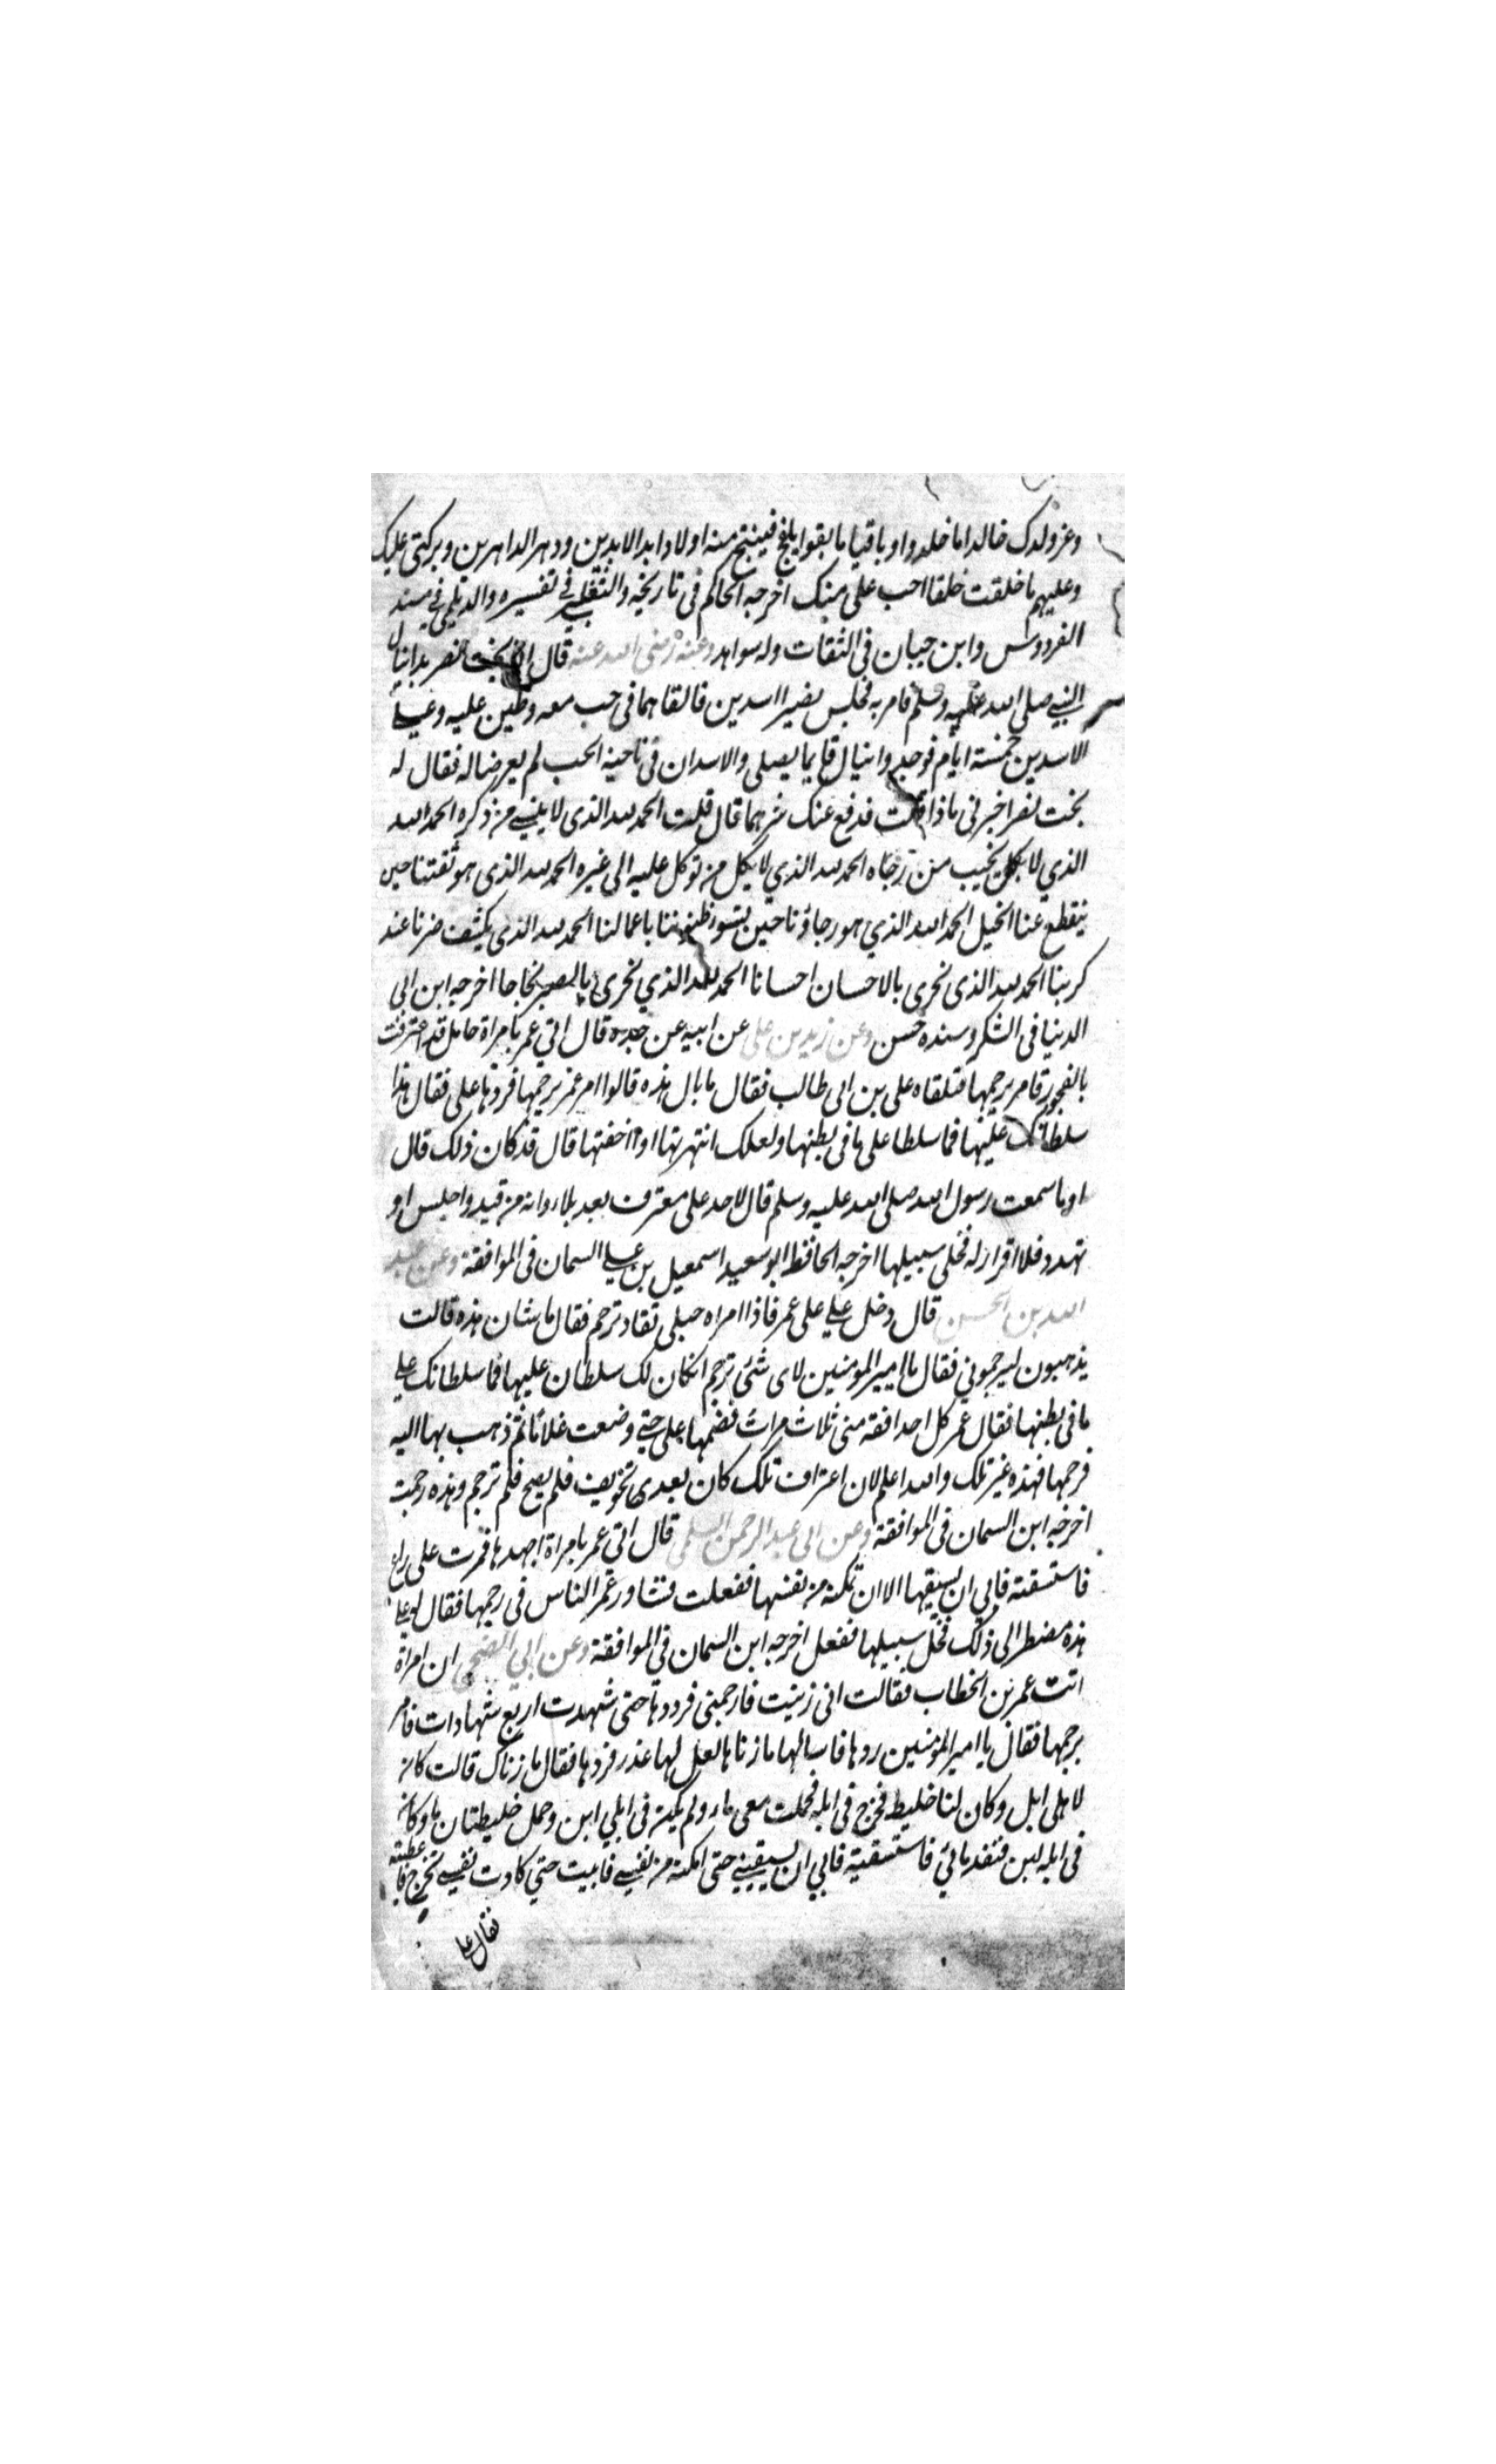 وعز ولدك خالدا ما خلدوا وباقيا ما بقوا يلقح فينتج منه اولادا ابد الابدين ودهر الداهرين وبركتي عليك
وعليهم ما خلقت خلقا احب على منك اخرجه الحاكم في تاريخه والثعلبي في تفسيره والديلمي في مسند
الفردوس وابن حبان في الثقات وله سواهد وعنه رضى الله عنه قال بخت نصر بدانيال
النبي صلى الله عليه وسلم فامر به فحبس بضير ااسدين فالقاهما في جب معه وطين عليه وعلى
الاسدين خمسة ايام فوجد دانيال قايما يصلى والاسدان في ناحية الجب لم يعرضا له فقال له
بخت نصر اخبرنى ماذا قلت فدفع عنك شرهما قال قلت الحمد لله الذى لا ينسى من ذكره الحمد لله
الذي لا يخيب من رجاه الحمد لله الذي لا يكل من توكل عليه الى غيره الحمد لله الذى هو ثقتنا حين
ينقطع عنا الحيل الحمد لله الذي هو رجاؤنا حين يتسو ظنوننا باعمالنا الحمد لله الذى يكشف ضرنا عند
كربنا الحمد لله الذى نحرى بالاحسان احسانا الحمد لله الذي نحرى بالصبر نجاجا اخرجه ابن ابى
الدنيا في الشكر وسنده حسن وعن زيد بن على عن ابيه عن جده قال اتي عمر بامراة حامل قد اعترفت
بالفجور فامر برجمها فتلقاه على بن ابى طالب فقال ما بال هذه قالوا امر عمر برجمها فردها على فقال هذا
سلطانك عليها فما سلطا على ما في بطنها ولعلك انتهرتها او اخفتها قال قد كان ذلك قال
اوما سمعت رسول الله صلى الله عليه وسلم قال لا حد على معترف بعد بلاء وانه من قيد واحلس او
تهدد فلا اقرار له فخلى سبيلها اخرجه الحافظ ابو سعيد اسمعيل بن على السمان في الموافقة وعن عبد
الله بن الحسن قال دخل على على عمر فاذا امراه حبلى تقاد ترجم فقال ما شان هذه قالت
يذهبون ليرجموني فقال يا امير المومنين لاى شئ ترجم انكان لك سلطان عليها فما سلطانك على
ما في بطنها فقال عمر كل احد افقه منى ثلاث مرات فضمها على حتى وضعت غلاما ثم ذهب بها اليه
فرجمها فهذه غير تلك والله اعلم لان اعتراف تلك كان بعدى تخويف فلم يصح فلم ترجم وهذه رجمت
اخرجه ابن السمان في الموافقة وعن ابى عبد الرحمن السلمى قال اتي عمر بامراة اجهدها فمرت على راع
فاستسقته فابي ان يسقيها الا ان تمكنه من نفسها ففعلت فتشاور عمر الناس في رجمها فقال له على
هذه مضطر الى ذلك فخل سبيلها ففعل اخرجه ابن السمان في الموافقة وعن ابي الضحى ان امراة
اتت عمر بن الخطاب فقالت اني زنيت فارجمنى فرددها حتى شهدت اربع شهادات فامر
برجمها فقال يا امير المومنين ردها فاسالها ما زناها لعل لها عذر فردها فقال ما زناك قالت كان
لاهلى ابل وكان لنا خليط فخرج في ابله فحملت معى ماء ولم يكن في ابلي ابن وحمل خليطتان ماء وكان
في ابله لبن فنفد مائي فاستسقيته فابي ان يسقيني حتى امكنه من نفسي فابيت حتي كادت نفسي تخرج فاعطيته
فقال على